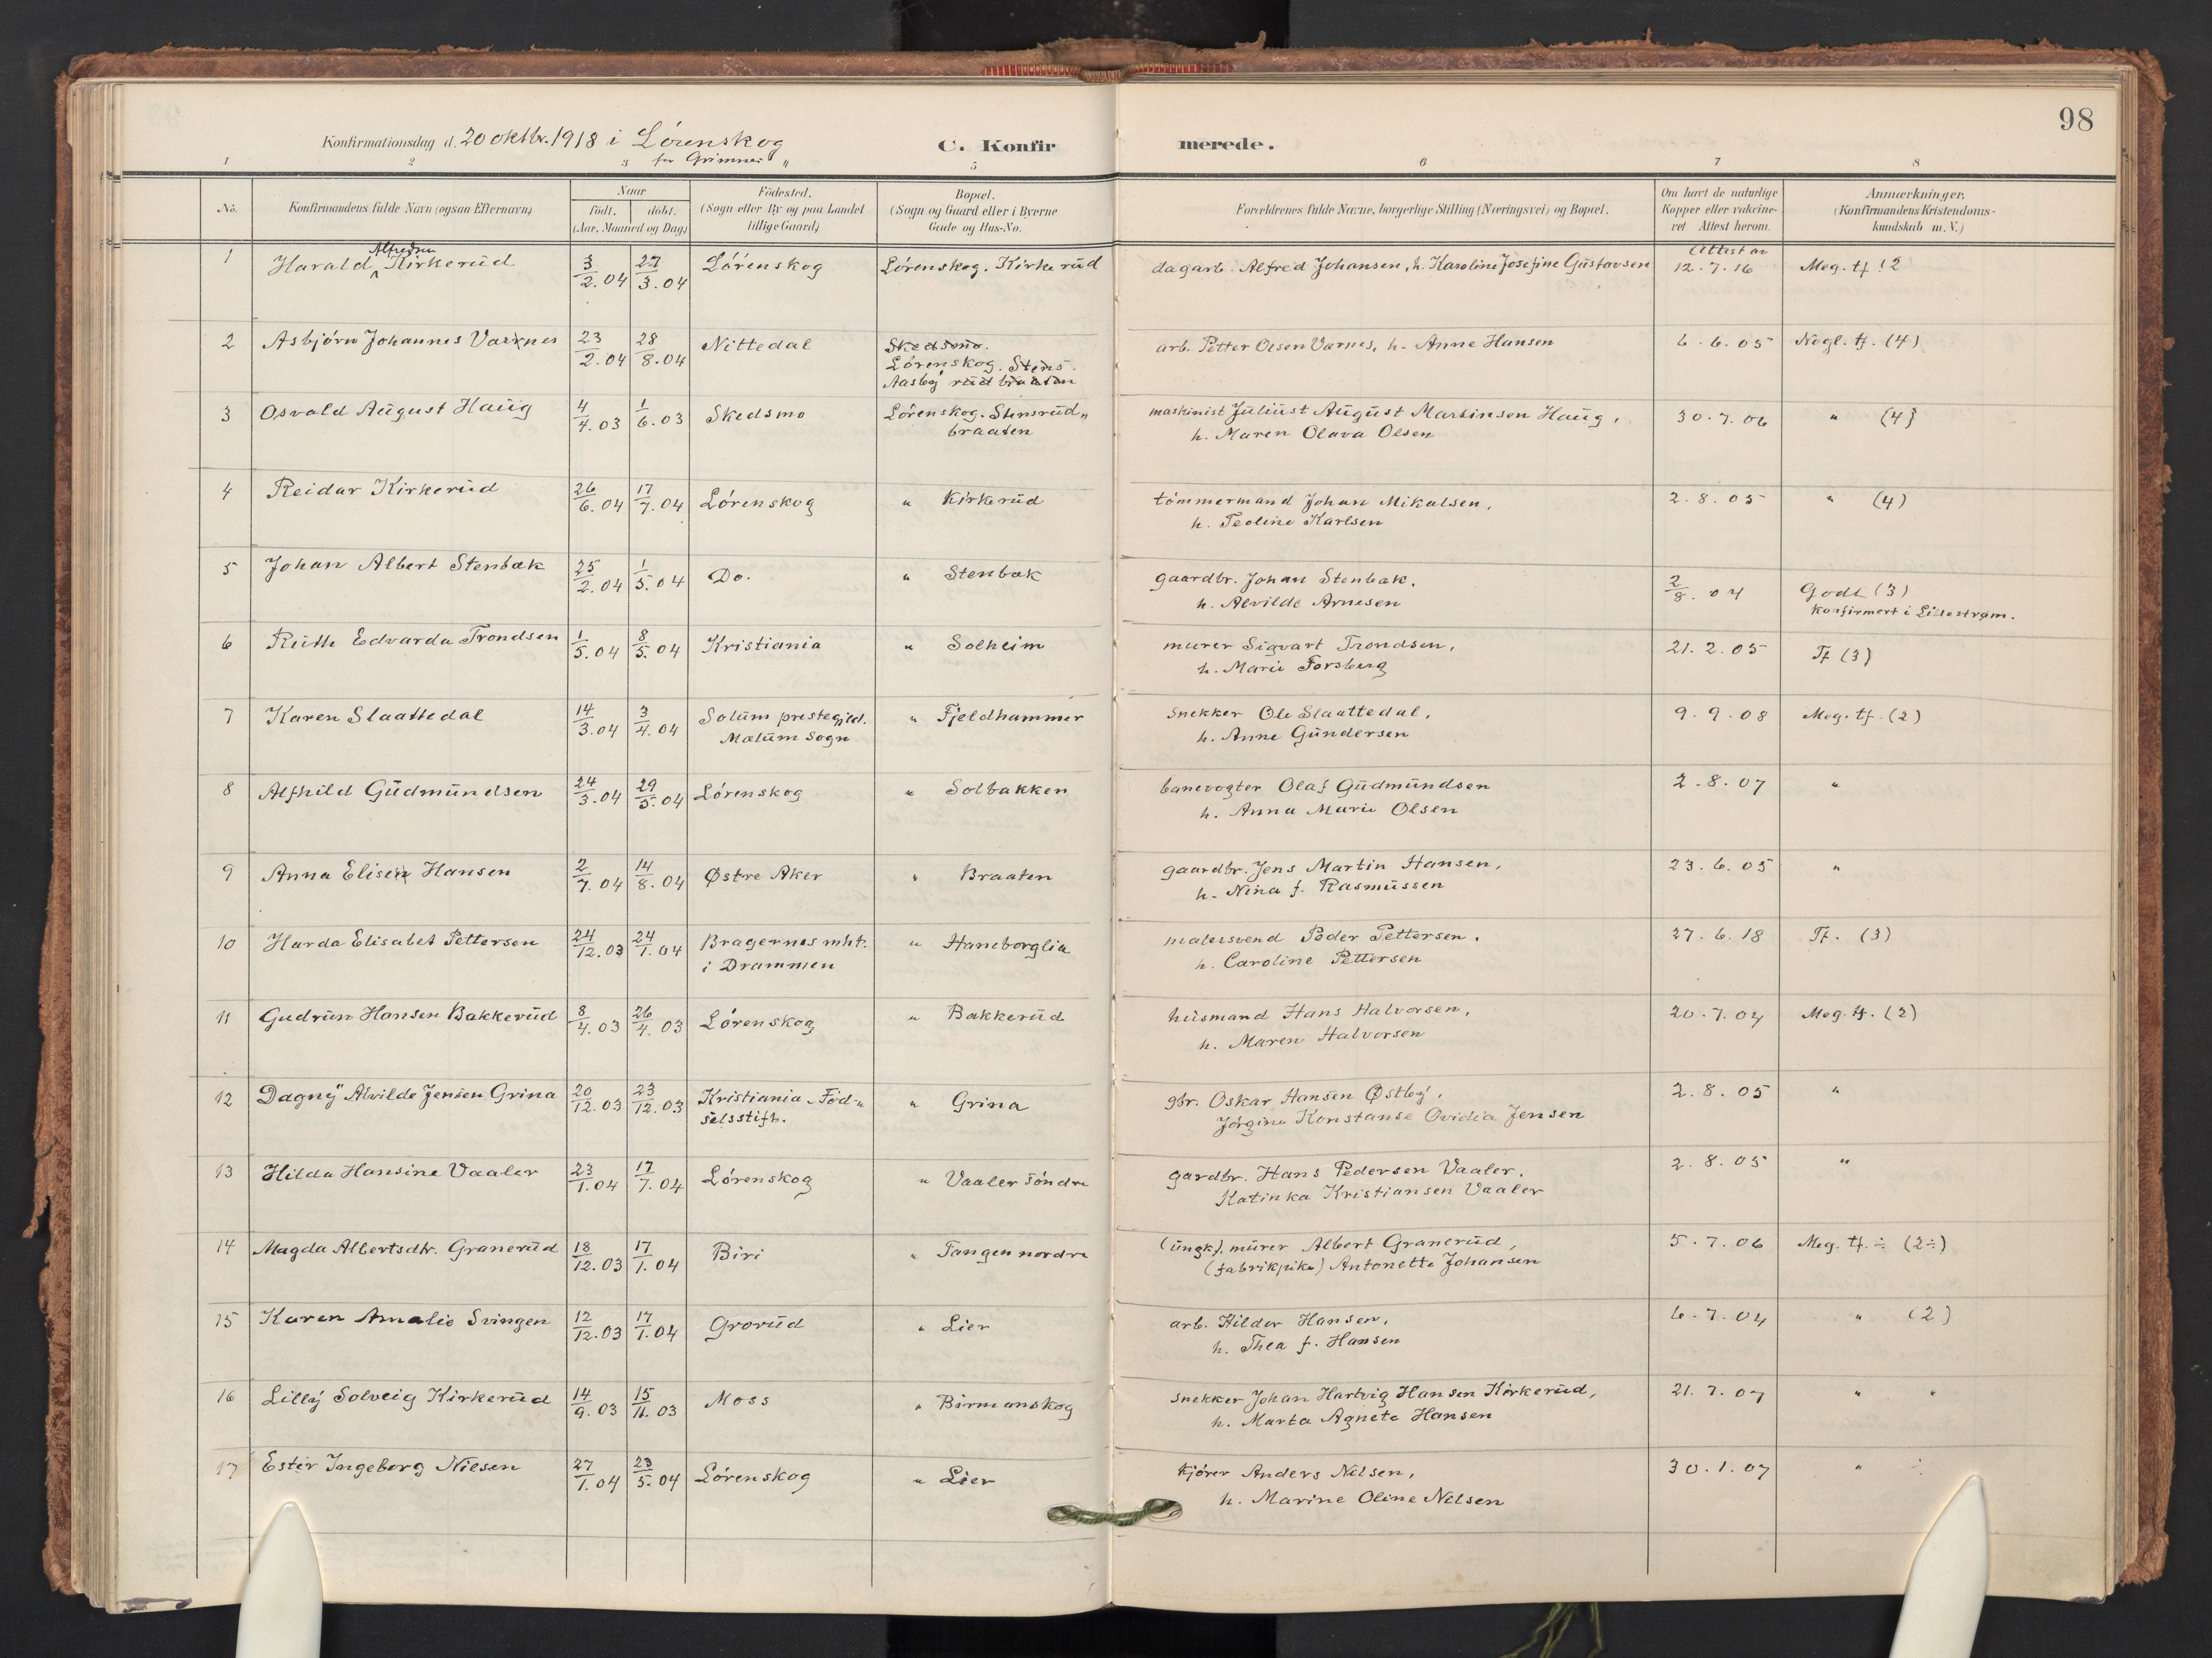 98
Konfirmationsdag d. 20 oktbr. 1918 i Lörenskog
C. Konfirmerede.
1 2 3 for Grimner " 5 6 7 8
No. Konfirmandens fulde Navn (ogsaa Efternavn) Naar födt. döbt. (Aar, Maaned og Dag) Födested. (Sogn eller By og paa Landet tillige Gaard) Bopæl. (Sogn og Gaard eller i Byerne Gade og Hus-No. Forældrenes fulde Navne, borgerlige Stilling (Næringsvei) og Bopæl. Om havt de naturlige Kopper eller vakcineret Attest herom. Anmærkninger. (Konfirmandens Kristendomskundskab m. V.)
1 Harald Alfredsen Kirkerud 3/2.04 27/3.04 Lörenskog Lörenskog. Kirkerud dagarb. Alfred Johansen, h. Karoline Josefine Gustavsen Attest av 12.7.16 Meg. tf. 2
2 Asbjörn Johannes Varnes 23/2.04 28/8.04 Nittedal Skedsmo. arb. Petter Olsen Varnes, h. Anne Hansen 6.6.05 Nogl. tf. (4)
Lörenskog. Stens-
Aasby rud braaten
3 Osvald August Haug 4/4.03 1/6.03 Skedsmo Lörenskog. Stensrud" maskinist Juliust August Martinsen Haug, 30.7.06 " (4)
braaten h. Maren Olava Olsen
4 Reidar Kirkerud 26/6.04 17/7.04 Lörenskog " Kirkerud tömmermand Johan Mikalsen, 2.8.05 " (4)
h. Teoline Karlsen
5 Johan Albert Stenbak 25/2.04 1/5.04 Do. " Stenbak gaardbr. Johan Stenbak, 2/8.04 Godt (3)
h. Alvilde Arnesen konfirmert i Lillestrøm.
6 Ruth Edvarda Trondsen 1/5.04 8/5.04 Kristiania " Solheim murer Sigvart Trondsen, 21.2.05 Tf (3)
h. Marie Forsberg
7 Karen Slaattedal 14/3.04 3/4.04 Solum prestegjeld. " Fjeldhammer Snekker Ole Slaattedal, 9.9.08 Meg. tf. (2)
Mælum Sogn h. Anne Gundersen
8 Alfhild Gudmundsen 24/3.04 29/5.04 Lörenskog " Solbakken banevogter Olaf Gudmundsen 2.8.07 "
h. Anna Marie Olsen
9 Anna Elise Hansen 2/7.04 14/8.04 Østre Aker " Braaten gaardbr. Jens Martin Hansen, 23.6.05 "
h. Nina f. Rasmussen
10 Harda Elisabet Pettersen 24/12.03 24/1.04 Bragernes mht. " Haneborglia malersvend Peder Pettersen, 27.6.18 Tf. (3)
i Drammen h. Caroline Pettersen
11 Gudrun Hansen Bakkerud 8/4.03 26/4.03 Lörenskog " Bakkerud husmand Hans Halvorsen, 20.7.04 Meg. tf. (2)
h. Maren Halvorsen
12 Dagny Alvilde Jensen Grina 20/12.03 23/12.03 Kristiania-Föd- " Grina gbr. Oskar Hansen Østby, 2.8.05 "
selsstift. Jörgine Konstanse Ovidia Jensen
13 Hilda Hansine Vaaler 23/1.04 17/7.04 Lörenskog " Vaaler söndre gardbr. Hans Pedersen Vaaler, 2.8.05 "
Katinka Kristiansen Vaaler
14 Magda Albertsdtr. Granerud 18/12.03 17/1.04 Biri " Tangen nordre (ungk), murer Albert Granerud, 5.7.06 Meg. tf. ÷ (2÷)
(fabrikpike) Antonette Johansen
15 Karen Amalie Svingen 12/12.03 17/1.04 Grorud " Lier arb. Hildor Hansen, 6.7.04 " (2)
h. Thea f. Hansen
16 Lilly Solveig Kirkerud 14/9.03 15/11.03 Moss " Birmanskog snekker Johan Hartvig Hansen Kirkerud, 21.7.07 " "
h. Marta Agneta Hansen
17 Ester Ingeborg Nilsen 27/1.04 23/5.04 Lörenskog " Lier kjörer Anders Nilsen, 30.1.07 "
h. Marine Oline Nilsen